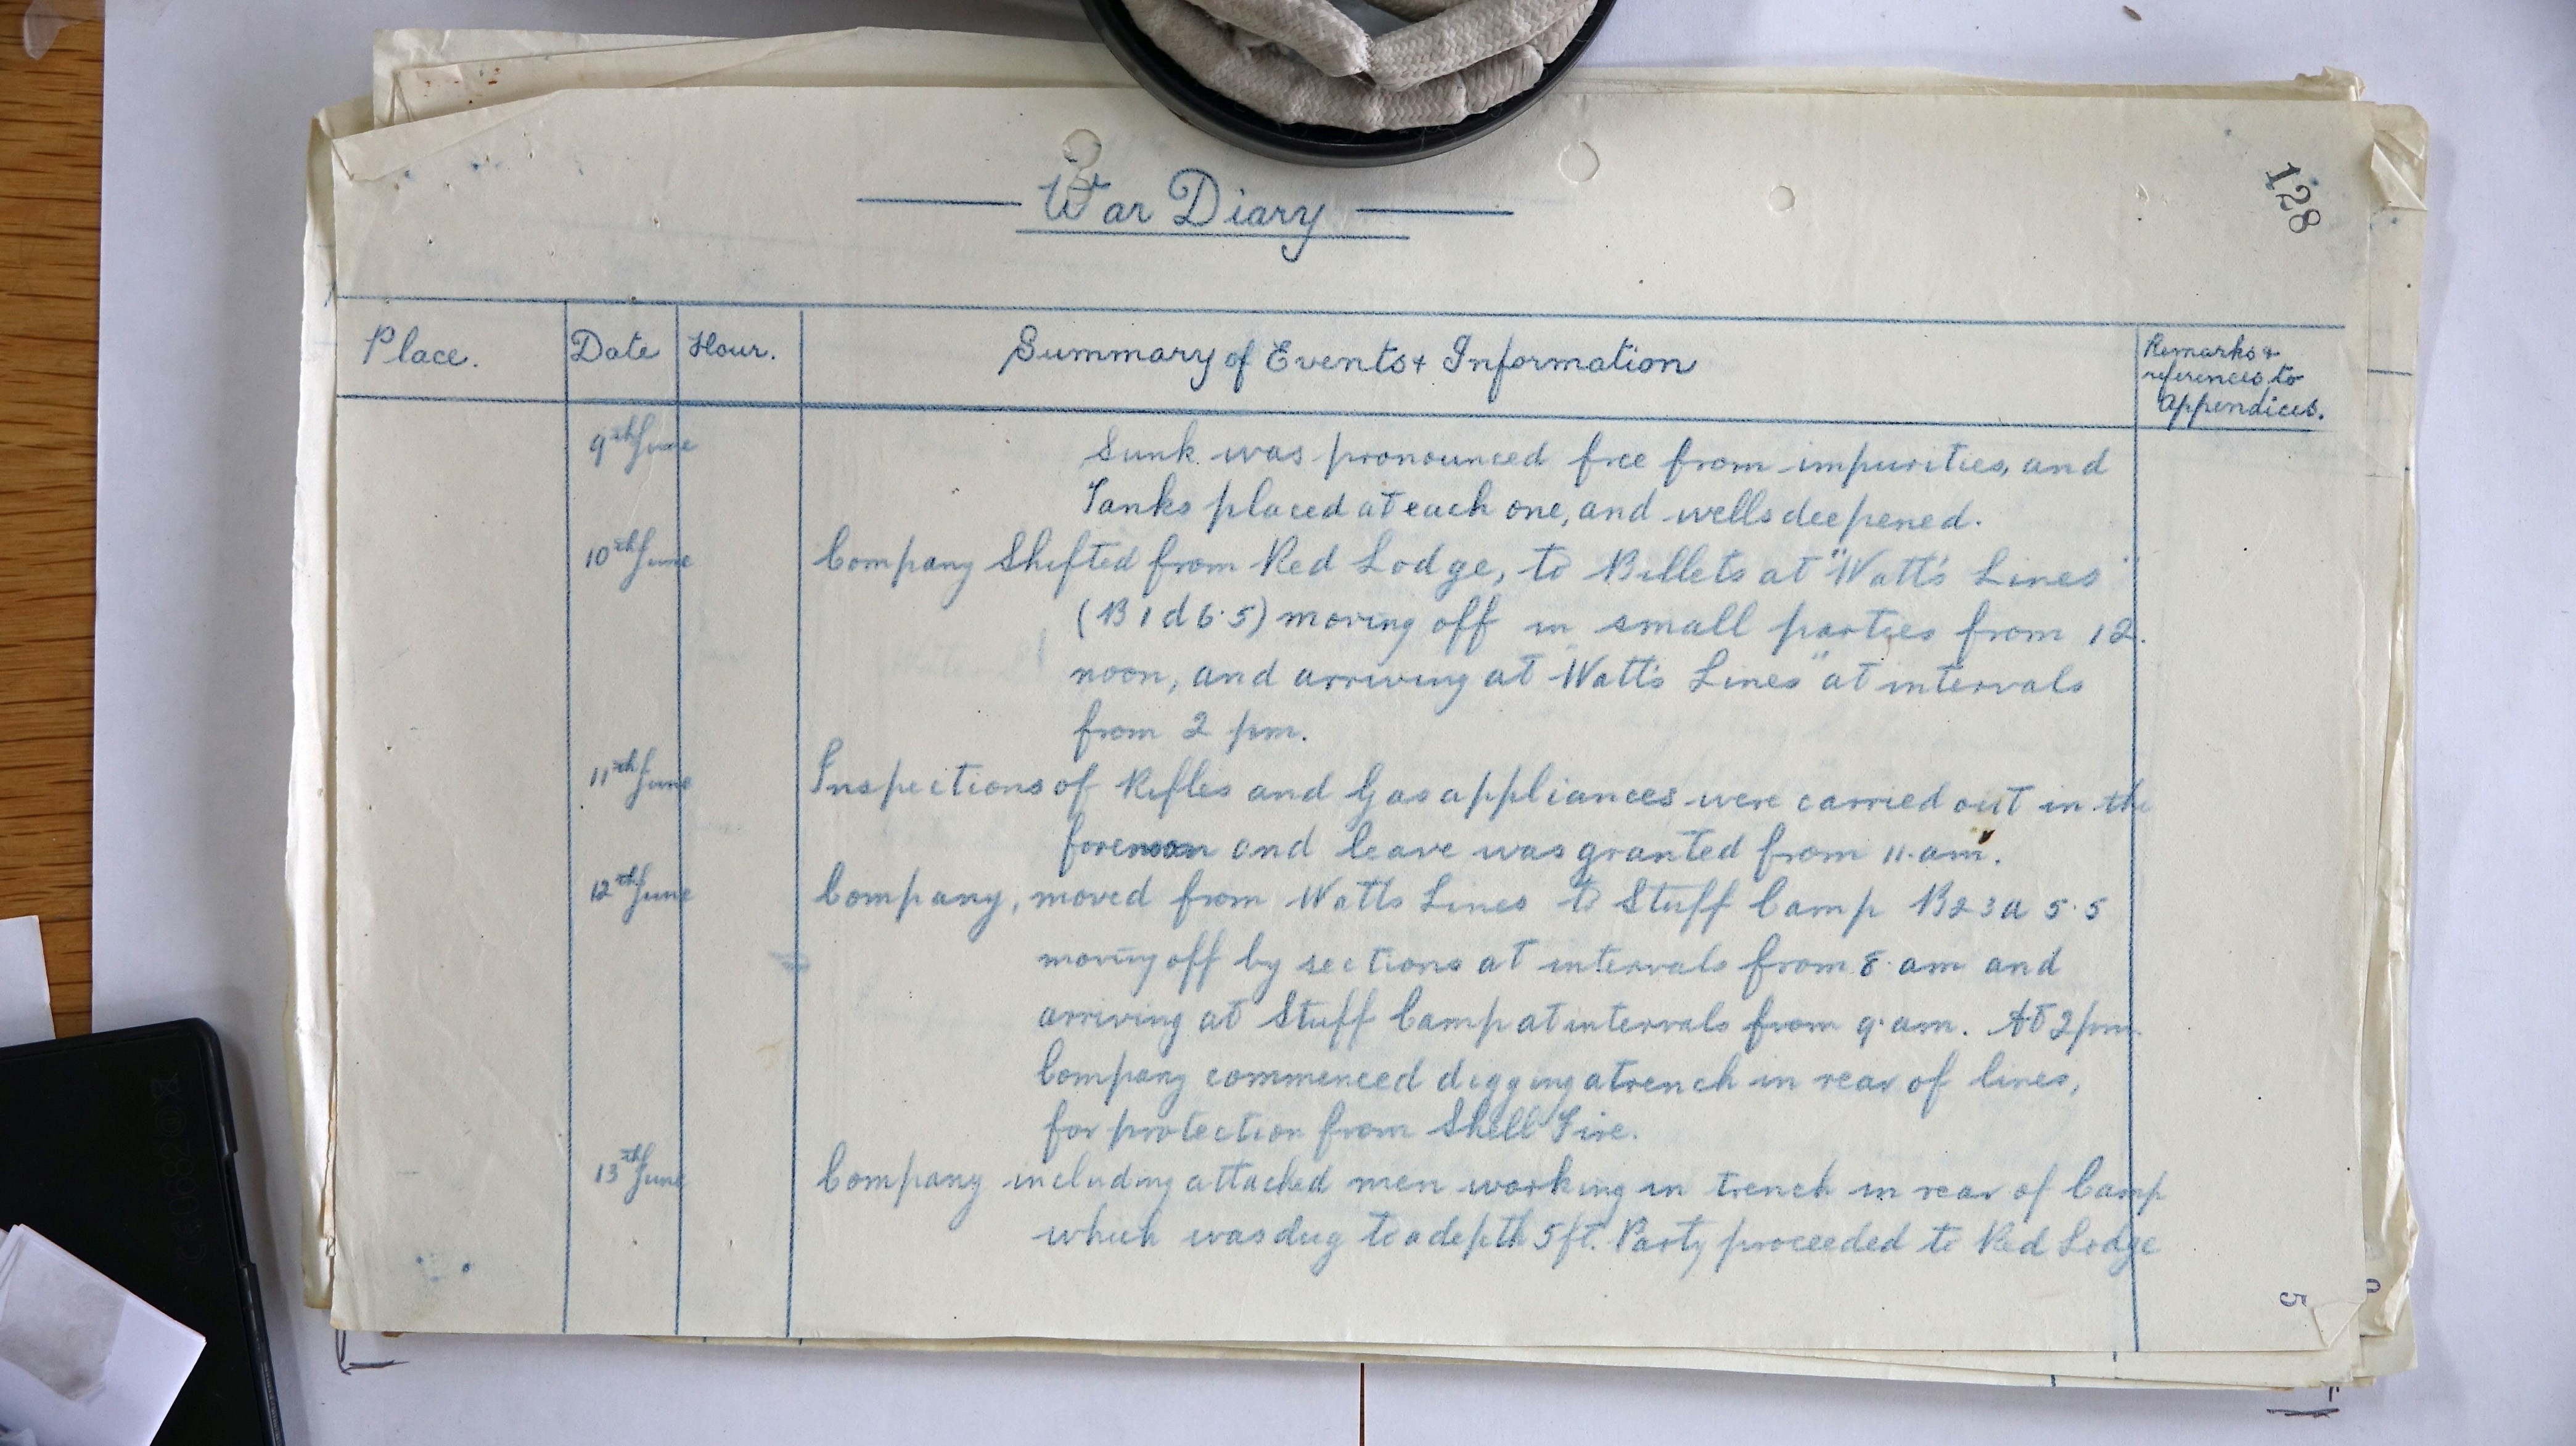 128
War Diary
Place. Date Hour. Summary of Events & Information Remarks & references to Appendices.
9th June Sunk was pronounced free from impurities, and
Tanks placed at each one, and wells deepened.
10th June Company Shifted from Red Lodge, to Billets at "Watt's Lines"
(B 1 d 6.5) moving off in small parties from 12.
noon, and arriving at "Watt's Lines" at intervals
from 2 pm.
11th June Inspections of Rifles and Gas appliances were carried out in the
forenoon and leave was granted from 11.am.
12th June Company, moved from Watts Lines to Stuff Camp B23a 5.5
moving off by sections at intervals from 8.am and
arriving at Stuff Camp at intervals from 9.am. At 2pm.
Company commenced digging a trench in rear of lines,
for protection from Shell Fire.
13th June Company including attached men working in trench in rear of Camp
which was dug to a depth 5ft. Party proceeded to Red Lodge
5